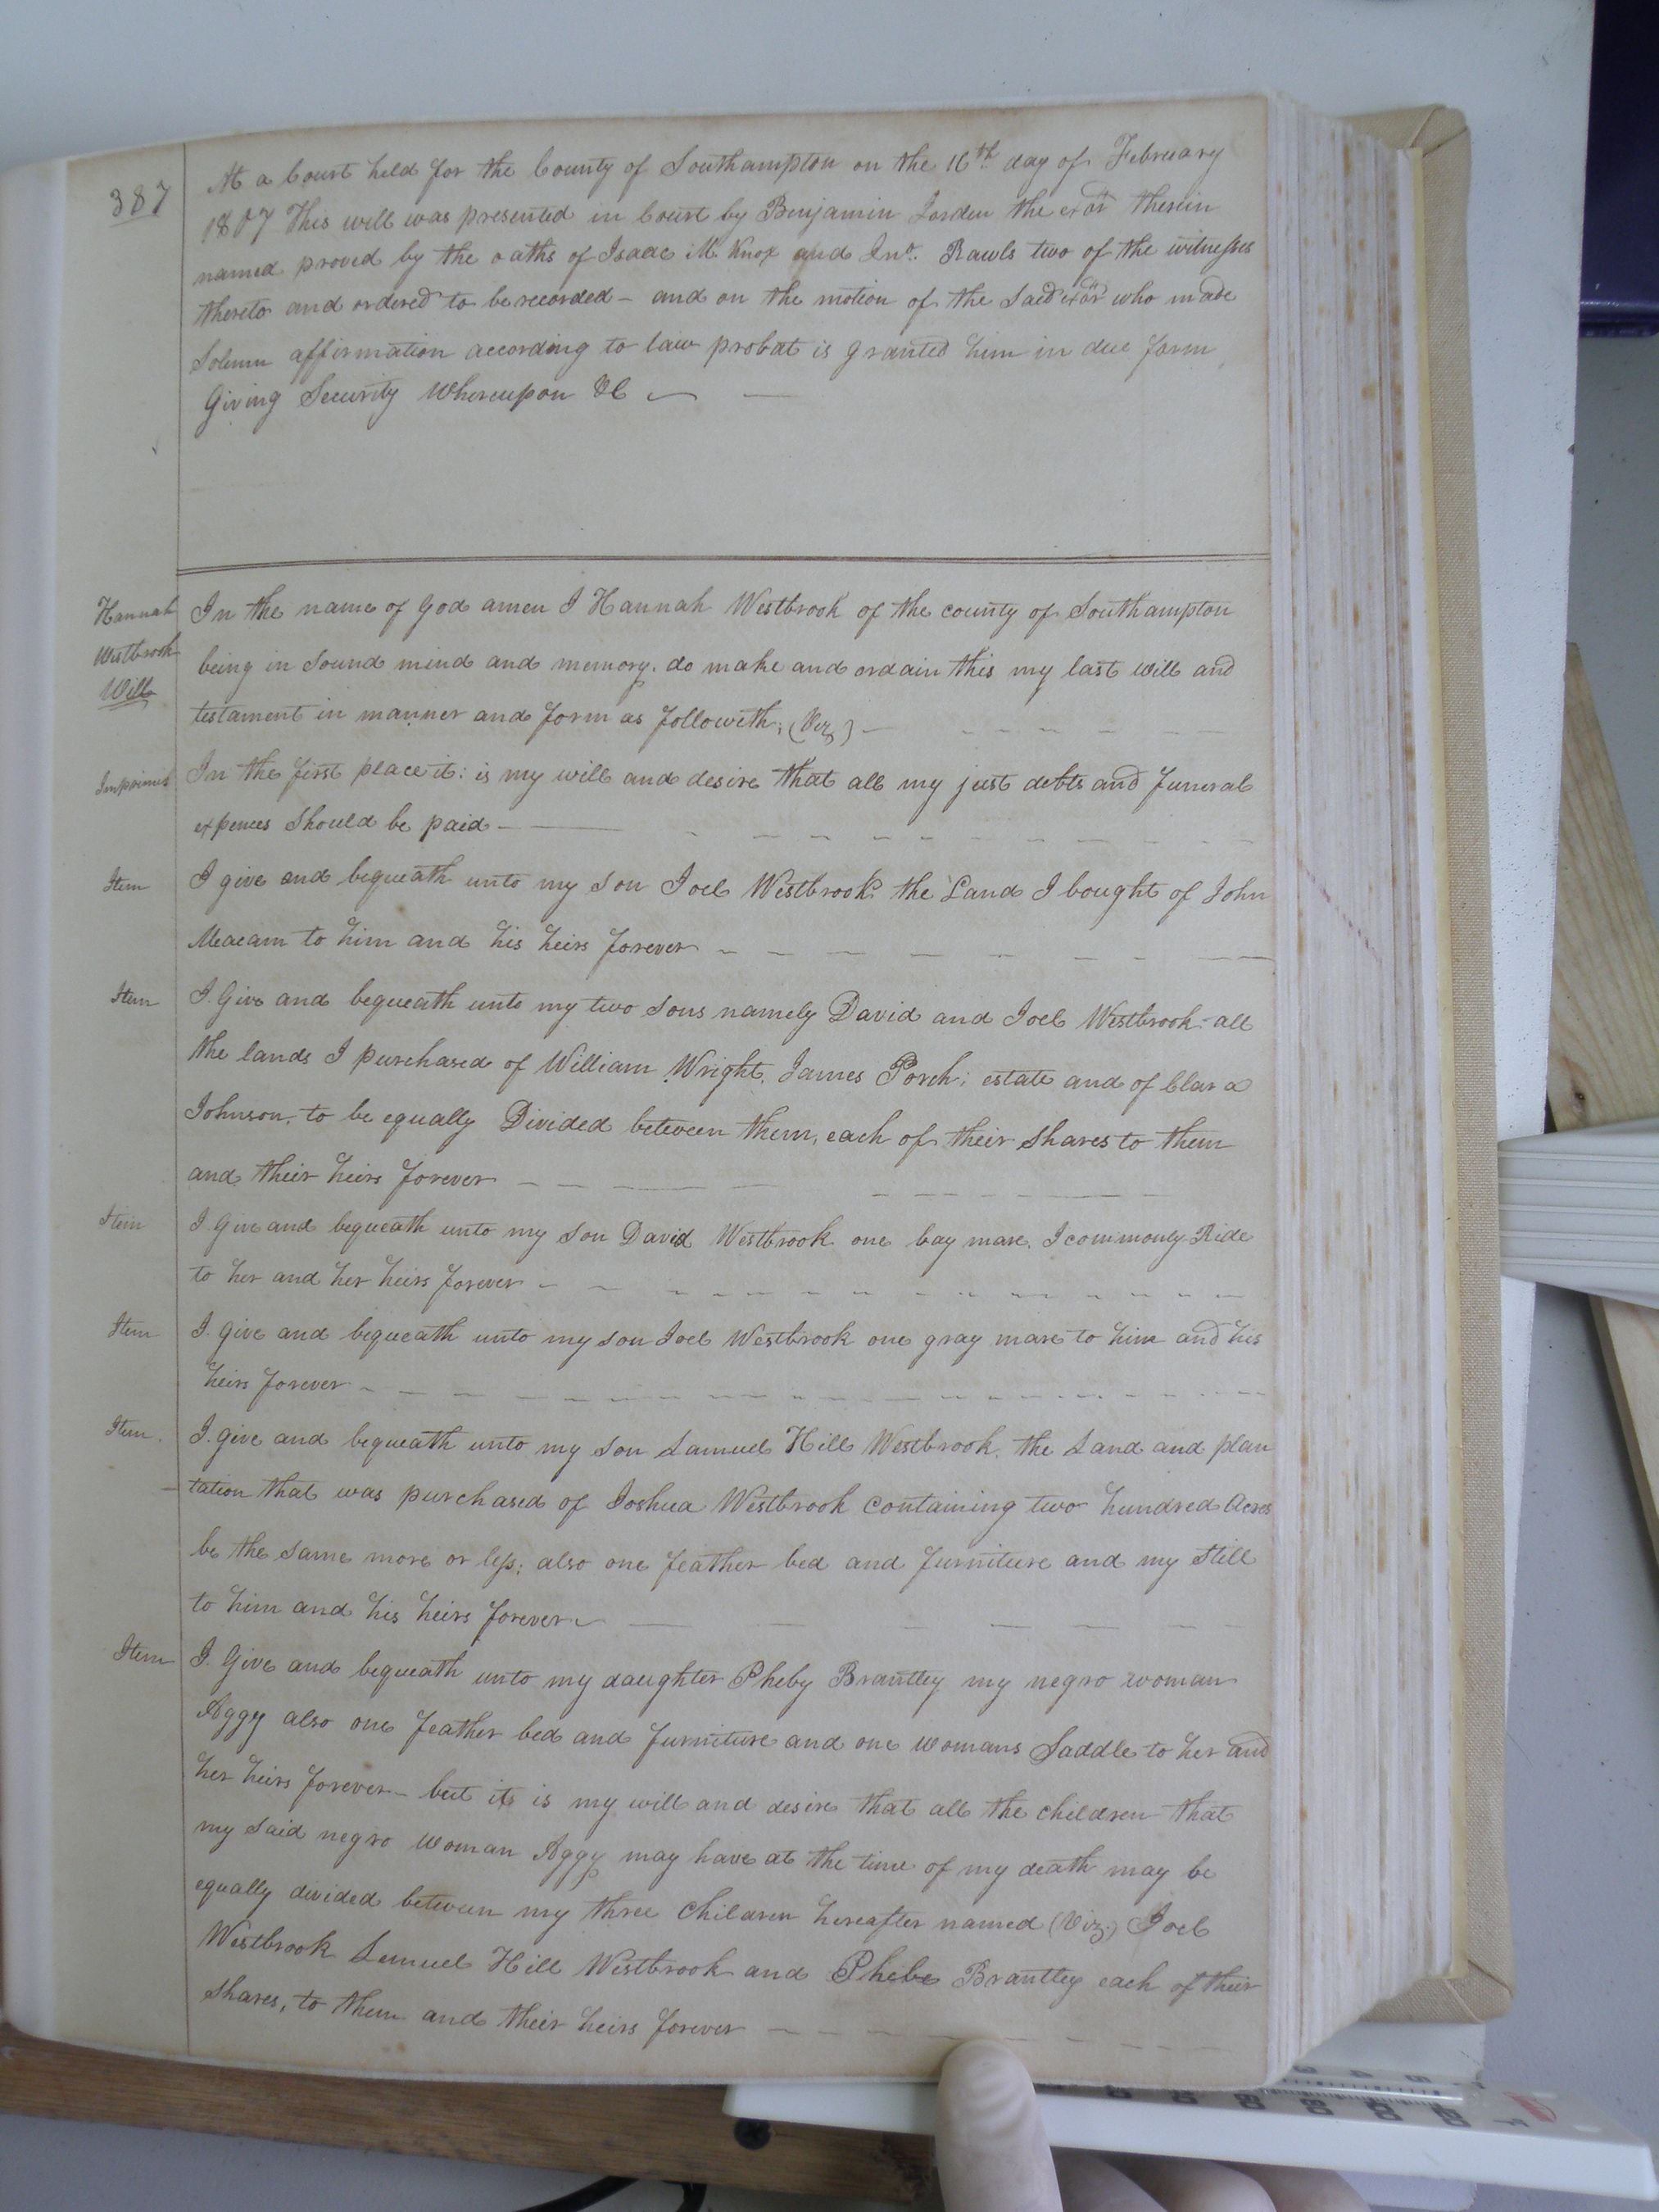 387
At a Court held for the County of Southampton on the 16th day of February
1807 This will was presented in Court by Benjamin Jorden the exōr therein
named proved by the oaths of Isaac M. Knox and Jno. Rawls two of the witnesses
thereto and ordered to be recorded - and on the motion of the said exōr who made
Solemn affirmation according to law probat is granted him in due form
Giving Security Whereupon &C
Hannah
Westbrook
Will
In the name of God amen I Hannah Westbrook of the county of Southampton
being in sound mind and memory. do make and ordain this my last will and
testament in manner and form as followeth; (Viz)
Imprimis In the first place it: is my will and desire that all my just debts and funeral
expences should be paid
Item I give and bequeath unto my son Joel Westbrook the Land I bought of John
Meacam to him and his heirs forever
Item I Give and bequeath unto my two sons namely David and Joel Westbrook all
the lands I purchased of William Wright, James Porch; estate and of Clara
Johnson, to be equally Divided between them, each of their shares to them
and their heirs forever
Item I Give and bequeath unto my son David Westbrook one bay mare. I commonly Ride
to her and her heirs forever
Item I give and bequeath unto my son Joel Westbrook one gray mare to him and his
heirs forever
Item I give and bequeath unto my son Samuel Hill Westbrook, the Land and plan
-tation that was purchased of Joshua Westbrook containing two hundred Acres
be the same more or less; also one feather bed and furniture and my still
to him and his heirs forever
Item I Give and bequeath unto my daughter Pheby Brantley my negro woman
Aggy also one feather bed and furniture and one womans Saddle to her and
her heirs forever - but it is my will and desire that all the children that
my said negro woman Aggy may have at the time of my death may be
equally divided between my three Children hereafter named (Viz) Joel
Westbrook Lemuel Hill Westbrook and Phebe Brantley each of their
shares, to them and their heirs forever